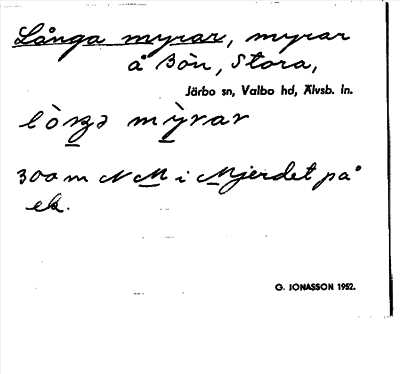 Långa myrar, myrar
å Bön, Stora,
Järbo sn, Valbo hd, Älvsb. ln.
mỳrar
300 m N M i Mjerdet på
ek.
G. JONASSON 1952.